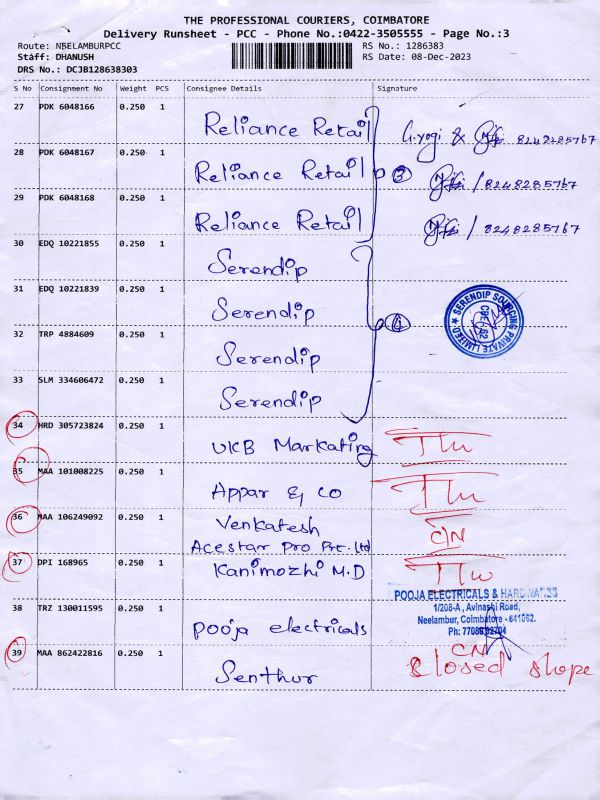 THE PROFESSIONAL COURIERS, COIMBATORE
Delivery Runsheet - PCC - Phone No.:0422-3505555 - Page No.:3
Route: NEELAMBURPCC
RS No.: 1286383
Staff: DHANUSH
RS Date: 08-Dec-2023
DRS No.: DCJB128638303
S No Consignment No Weight PCS Consignee Details Signature
27 PDK 6048166 0.250 1 Reliance Retail G.yogi & 8248285767
28 PDK 6048167 0.250 1 Reliance Retail ③ /8248285767
29 PDK 6048168 0.250 1 Reliance Retail /8248285767
30 EDQ 10221855 0.250 1 Serendip
31 EDQ 10221839 0.250 1 Serendip
④ SERENDIP SOURCING PRIVATE LIMITED ★
32 TRP 4884609 0.250 1 Serendip
33 SLM 334606472 0.250 1 Serendip
34 HRD 305723824 0.250 1 UKB Markating
35 MAA 101008225 0.250 1 Appar & co
36 MAA 106249092 0.250 1 Venkatesh C/N
Acestar Pro Pvt. Ltd
37 DPI 168965 0.250 1 Kanimozhi M.D
POOJA ELECTRICALS & HARDWARES
1/208-A, Avinashi Road,
Neelambur, Coimbatore - 641062.
38 TRZ 130011595 0.250 1 pooja electricals
39 MAA 862422816 0.250 1 Senthur CN
closed shope